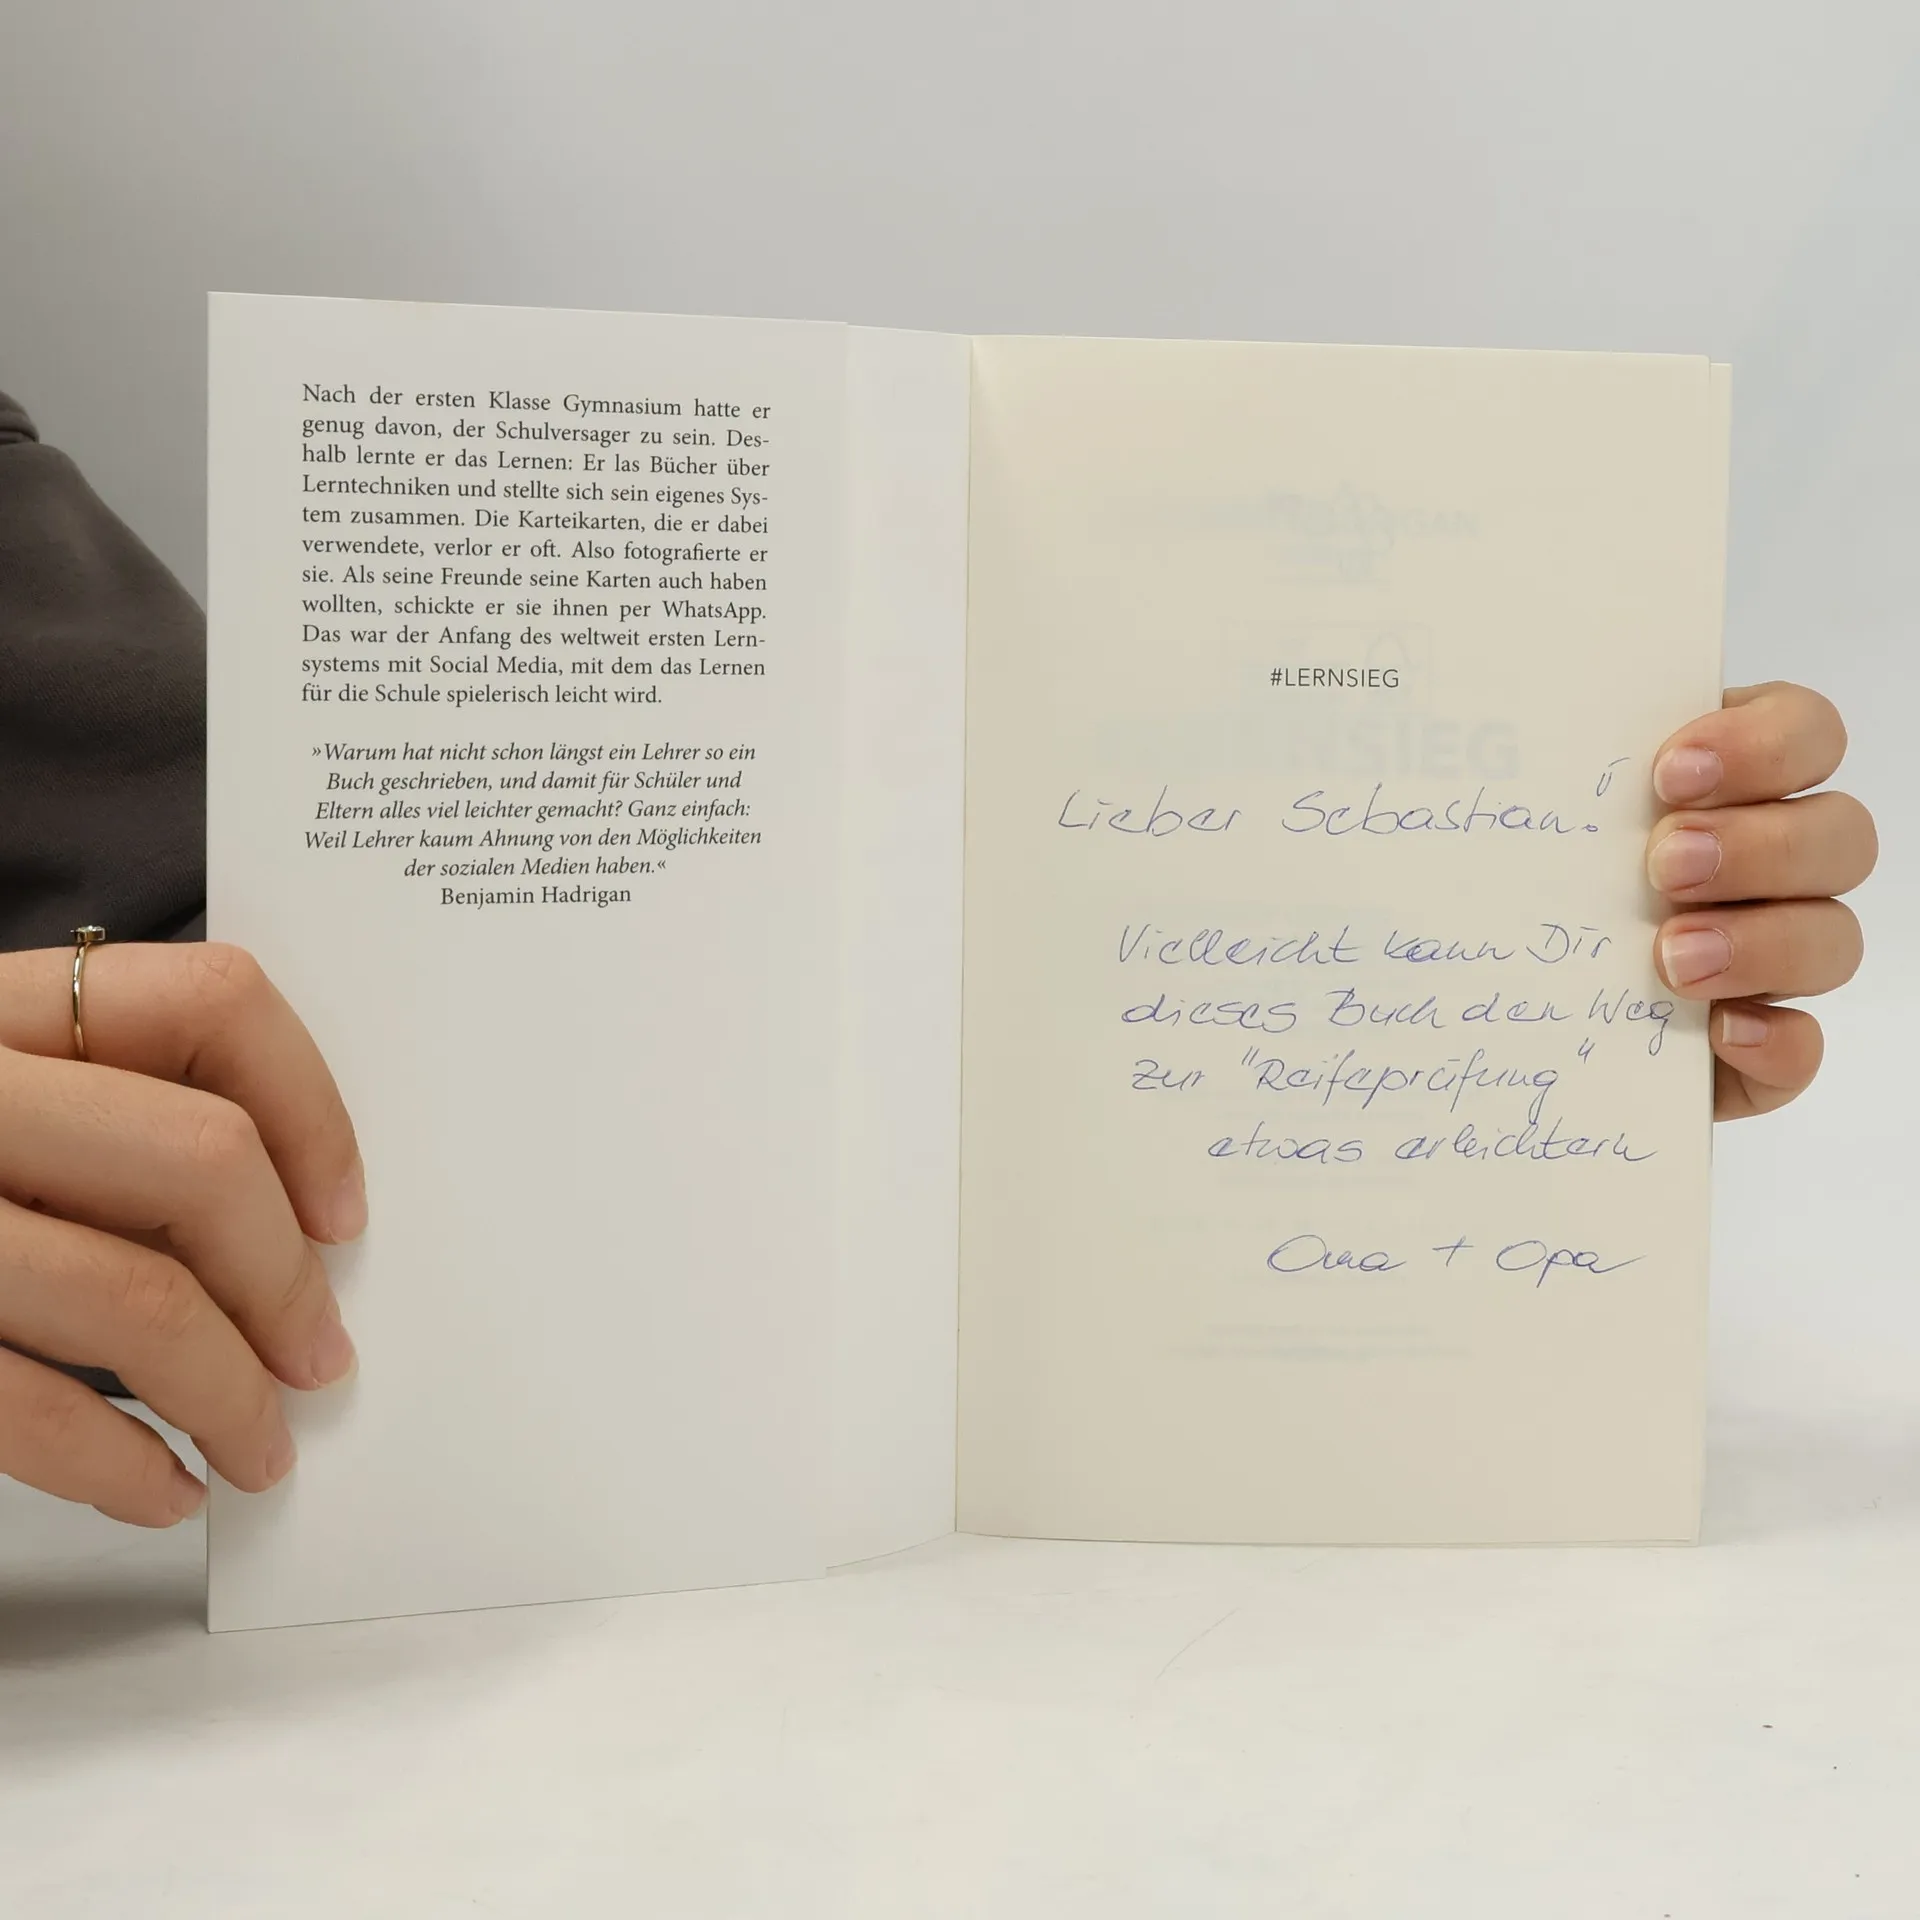 Nach der ersten Klasse Gymnasium hatte er
genug davon, der Schulversager zu sein. Des-
halb lernte er das Lernen: Er las Bücher über
Lerntechniken und stellte sich sein eigenes Sys-
tem zusammen. Die Karteikarten, die er dabei
verwendete, verlor er oft. Also fotografierte er
sie. Als seine Freunde seine Karten auch haben
wollten, schickte er sie ihnen per WhatsApp.
Das war der Anfang des weltweit ersten Lern-
systems mit Social Media, mit dem das Lernen
für die Schule spielerisch leicht wird.
»Warum hat nicht schon längst ein Lehrer so ein
Buch geschrieben, und damit für Schüler und
Eltern alles viel leichter gemacht? Ganz einfach:
Weil Lehrer kaum Ahnung von den Möglichkeiten
der sozialen Medien haben.«
Benjamin Hadrigan
#LERNSIEG
Lieber Sebastian!
Vielleicht kann Dir
dieses Buch den Weg
zur "Reifeprüfung"
etwas erleichtern
Oma + Opa